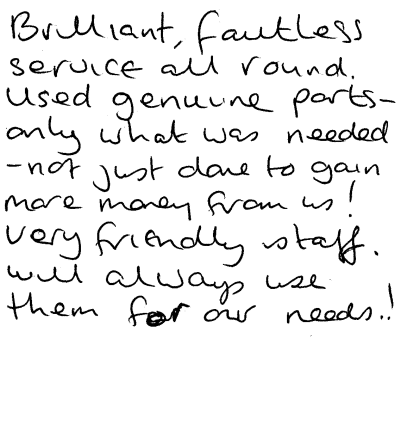 Brilliant, faultless
service all round.
Used genuine parts-
only what was needed
-not just done to gain
more money from us!
very friendly staff.
will always use
them for our needs.!